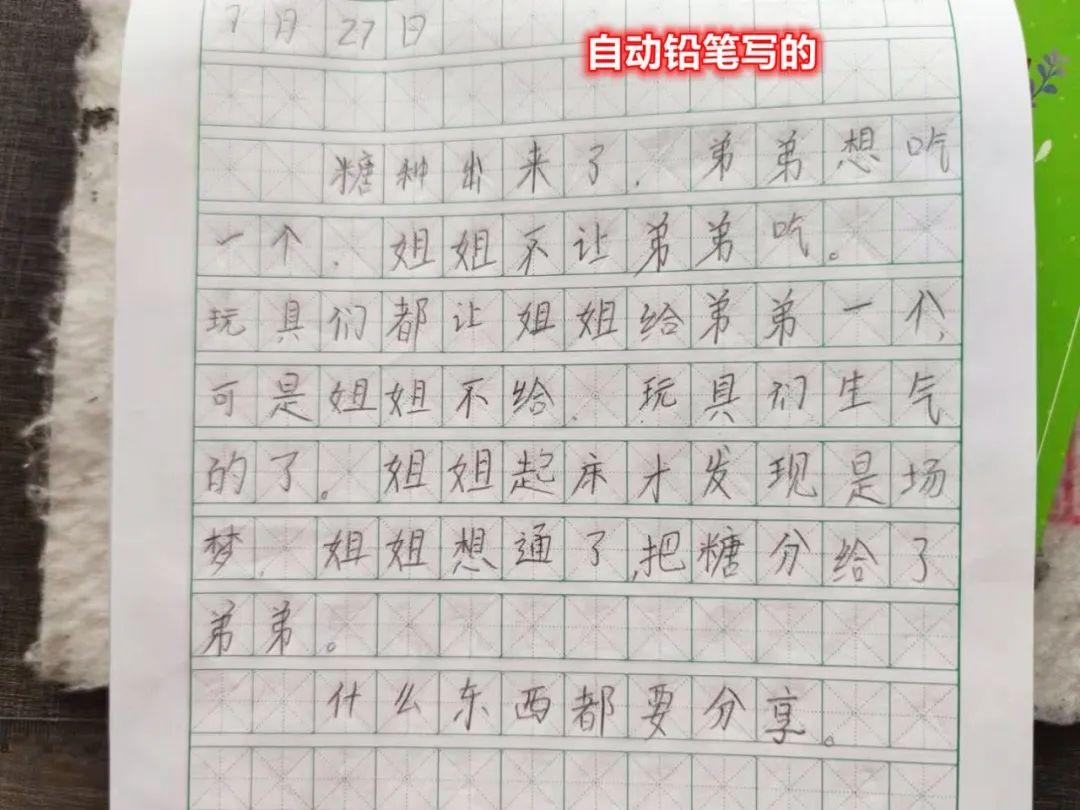 7月27日
自动铅笔写的
糖种出来了，弟弟想吃
一个，姐姐不让弟弟吃。
玩具们都让姐姐给弟弟一个，
可是姐姐不给，玩具们生气
的了。姐姐起床才发现是场
梦，姐姐想通了，把糖分给了
弟弟。
什么东西都要分享。